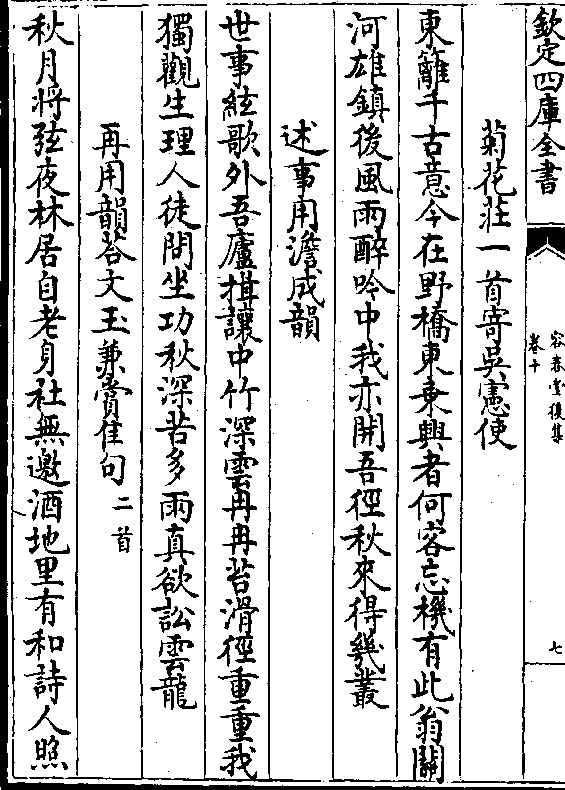 欽定四庫全書
容春堂後集
卷十
七
菊花莊一首寄吳憲使
東籬千古意今在野橋東乗興者何客忘機有此翁關
河雄鎮後風雨醉吟中我亦開吾徑秋來得幾叢
述事用澹成韻
世事絃歌外吾廬揖讓中竹深雲冉冉苔滑徑重重我
獨觀生理人徒問坐功秋深苦多雨真欲訟雲龍
再用韻荅文玉兼賞佳句二首
秋月將弦夜林居自老身社無邀酒地里有和詩人照